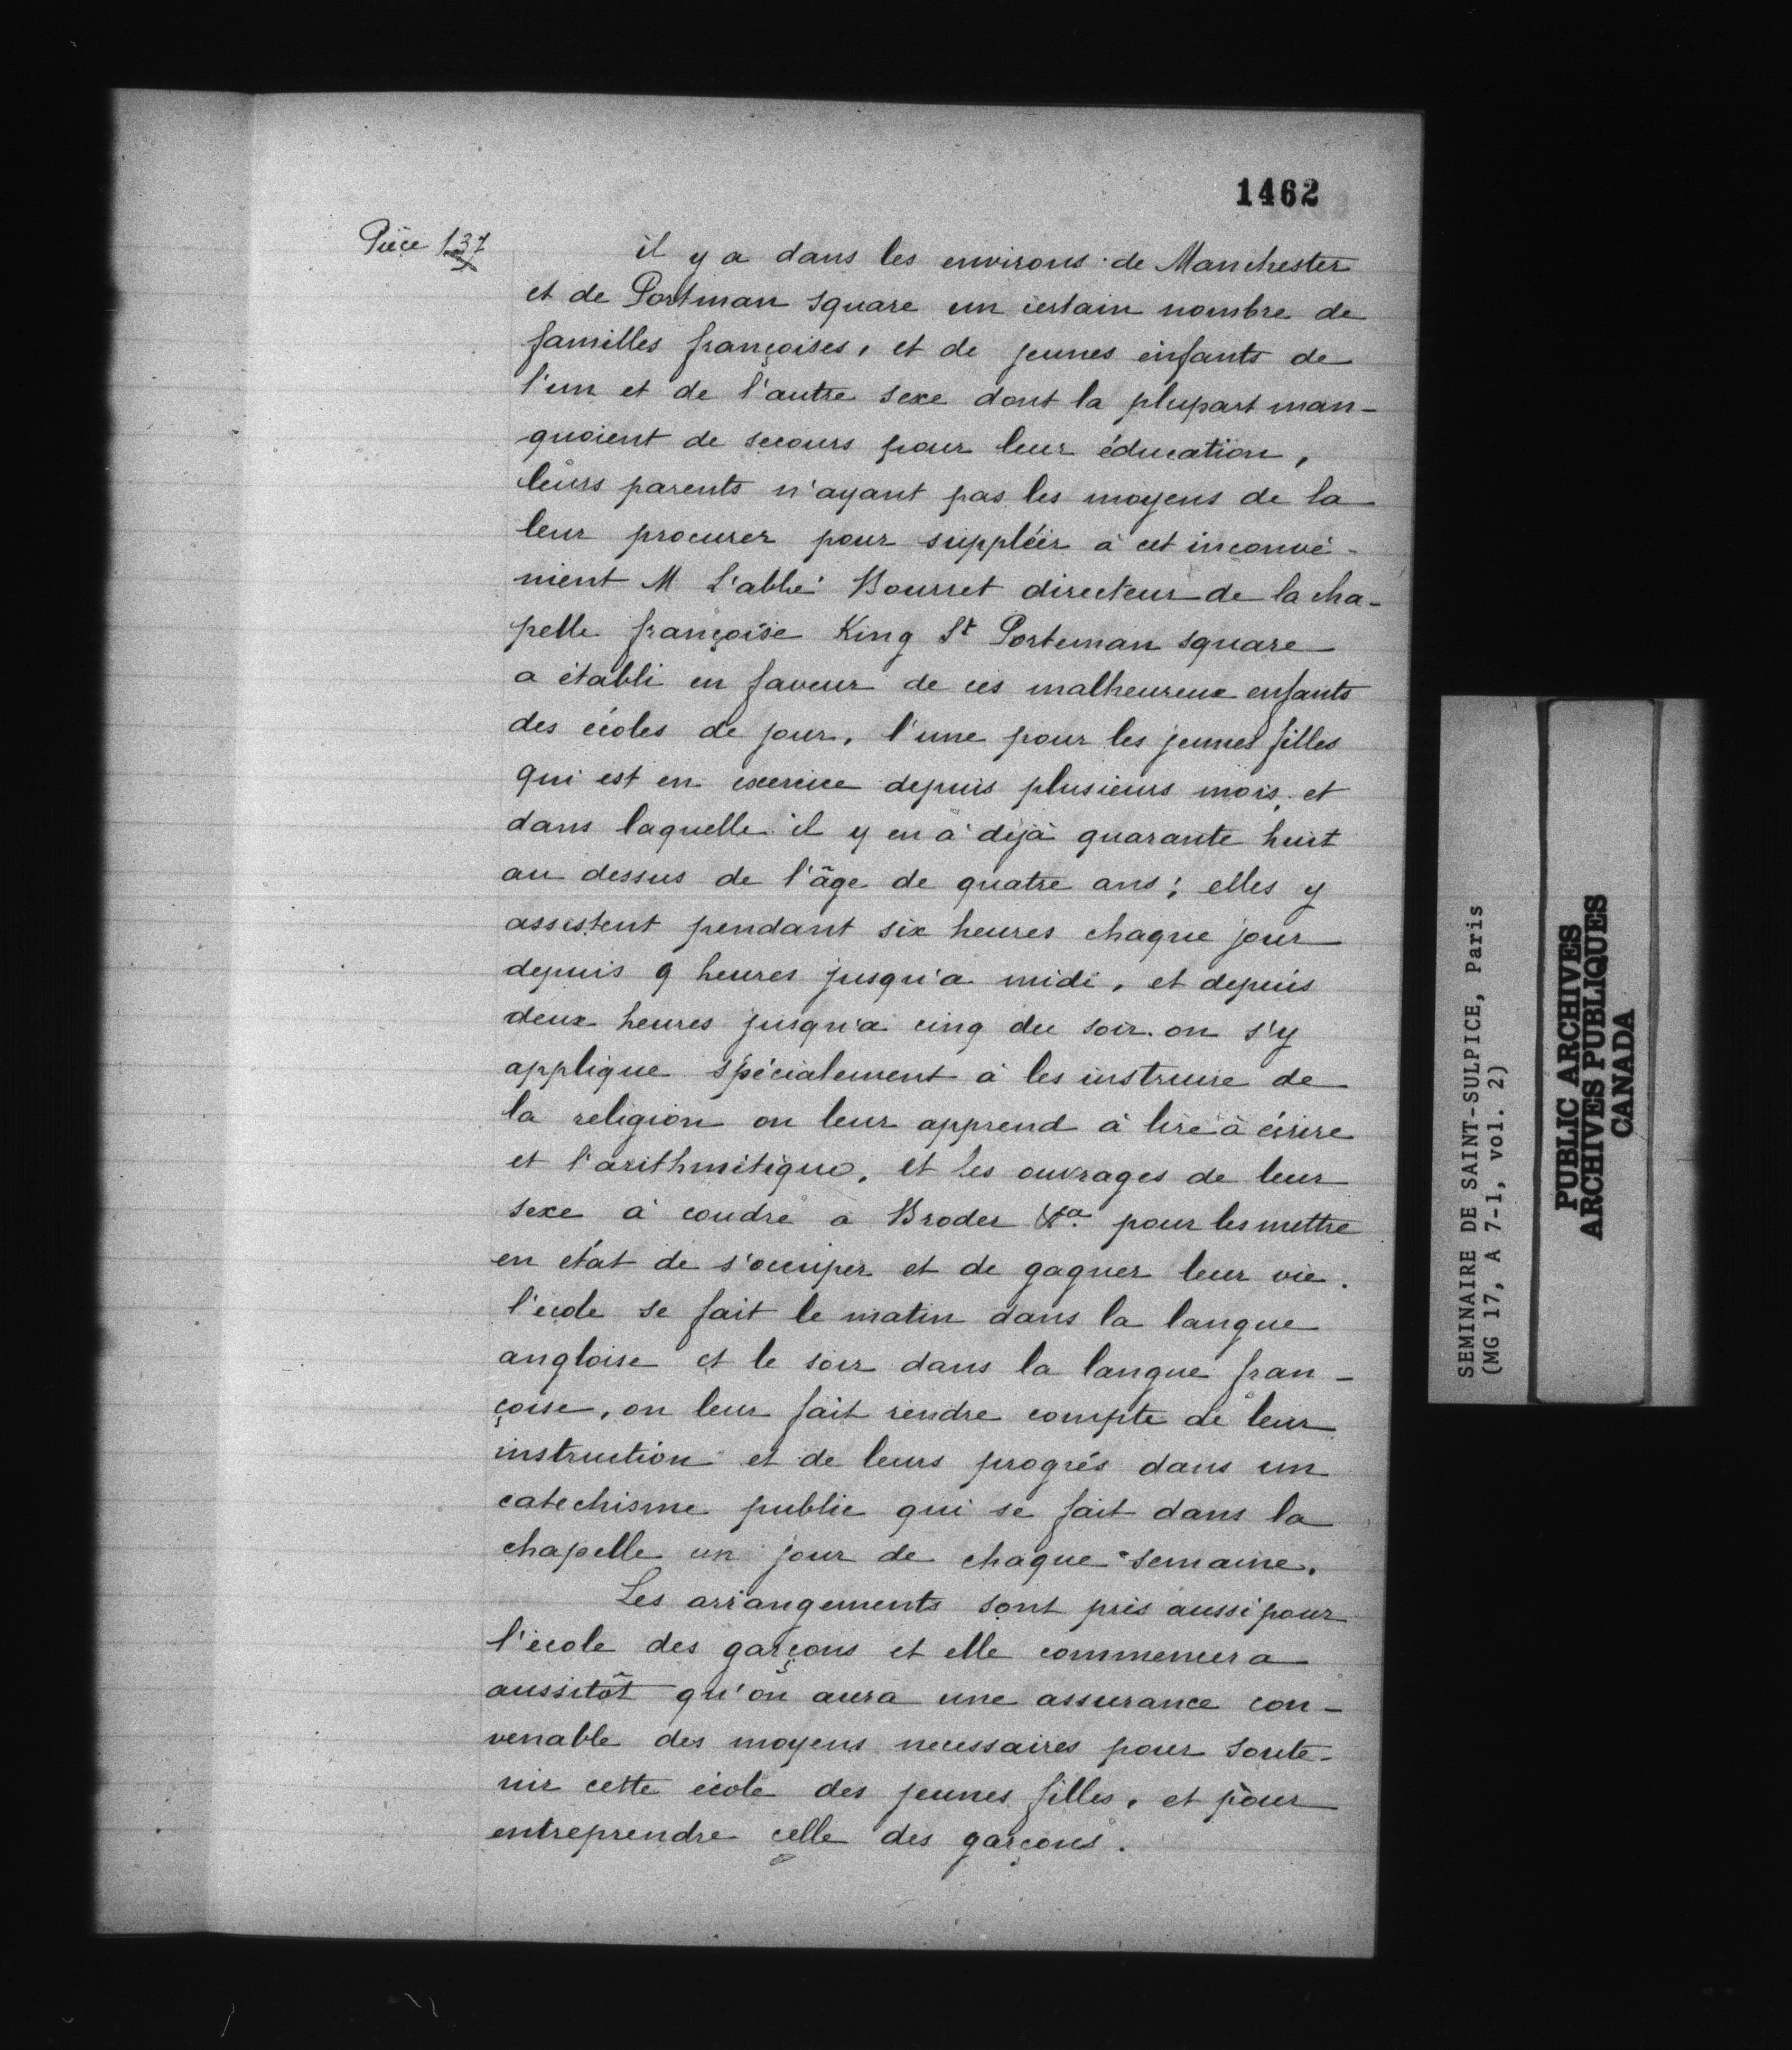 1462
Pièce 137
il y a dans les environs de Manchester
et de Portman square un certain nombre de
familles françoises, et de jeunes enfants de
l'un et de l'autre sexe dont la plupart man-
quoient de secours pour leur éducation,
leurs parents n'ayant pas les moyens de la
leur procurer pour suppléer à cet inconvé-
nient M L'abbé Bourret directeur de la cha-
pelle françoise King St Porteman square
a établi en faveur de ces malheureux enfants
des écoles de jour, l'une pour les jeunes filles
qui est en exercice depuis plusieurs mois, et
dans laquelle il y en a déjà quarante huit
au dessus de l'âge de quatre ans; elles y
assistent pendant six heures chaque jour
depuis 9 heures jusqu'a midi, et depuis
deux heures jusqu'a cinq du soir. on s'y
applique spécialement à les instruire de
la religion on leur apprend à lire à écrire
et l'arithmétique, et les ouvrages de leur
sexe à coudre à Broder &ca. pour les mettre
en état de s'occuper et de gagner leur vie.
l'école se fait le matin dans la langue
angloise et le soir dans la langue fran-
çoise, on leur fait rendre compte de leur
instruction et de leurs progrés dans un
catechisme public qui se fait dans la
chapelle un jour de chaque semaine.
Les arrangements sont pris aussi pour
l'école des garçons et elle commencera
aussitôt qu'on aura une assurance con-
venable des moyens necessaires pour soute-
nir cette école des jeunes filles, et pour
entreprendre celle des garçons.
SEMINAIRE DE SAINT-SULPICE, Paris
(MG 17, A 7-1, vol. 2)
PUBLIC ARCHIVES
ARCHIVES PUBLIQUES
CANADA